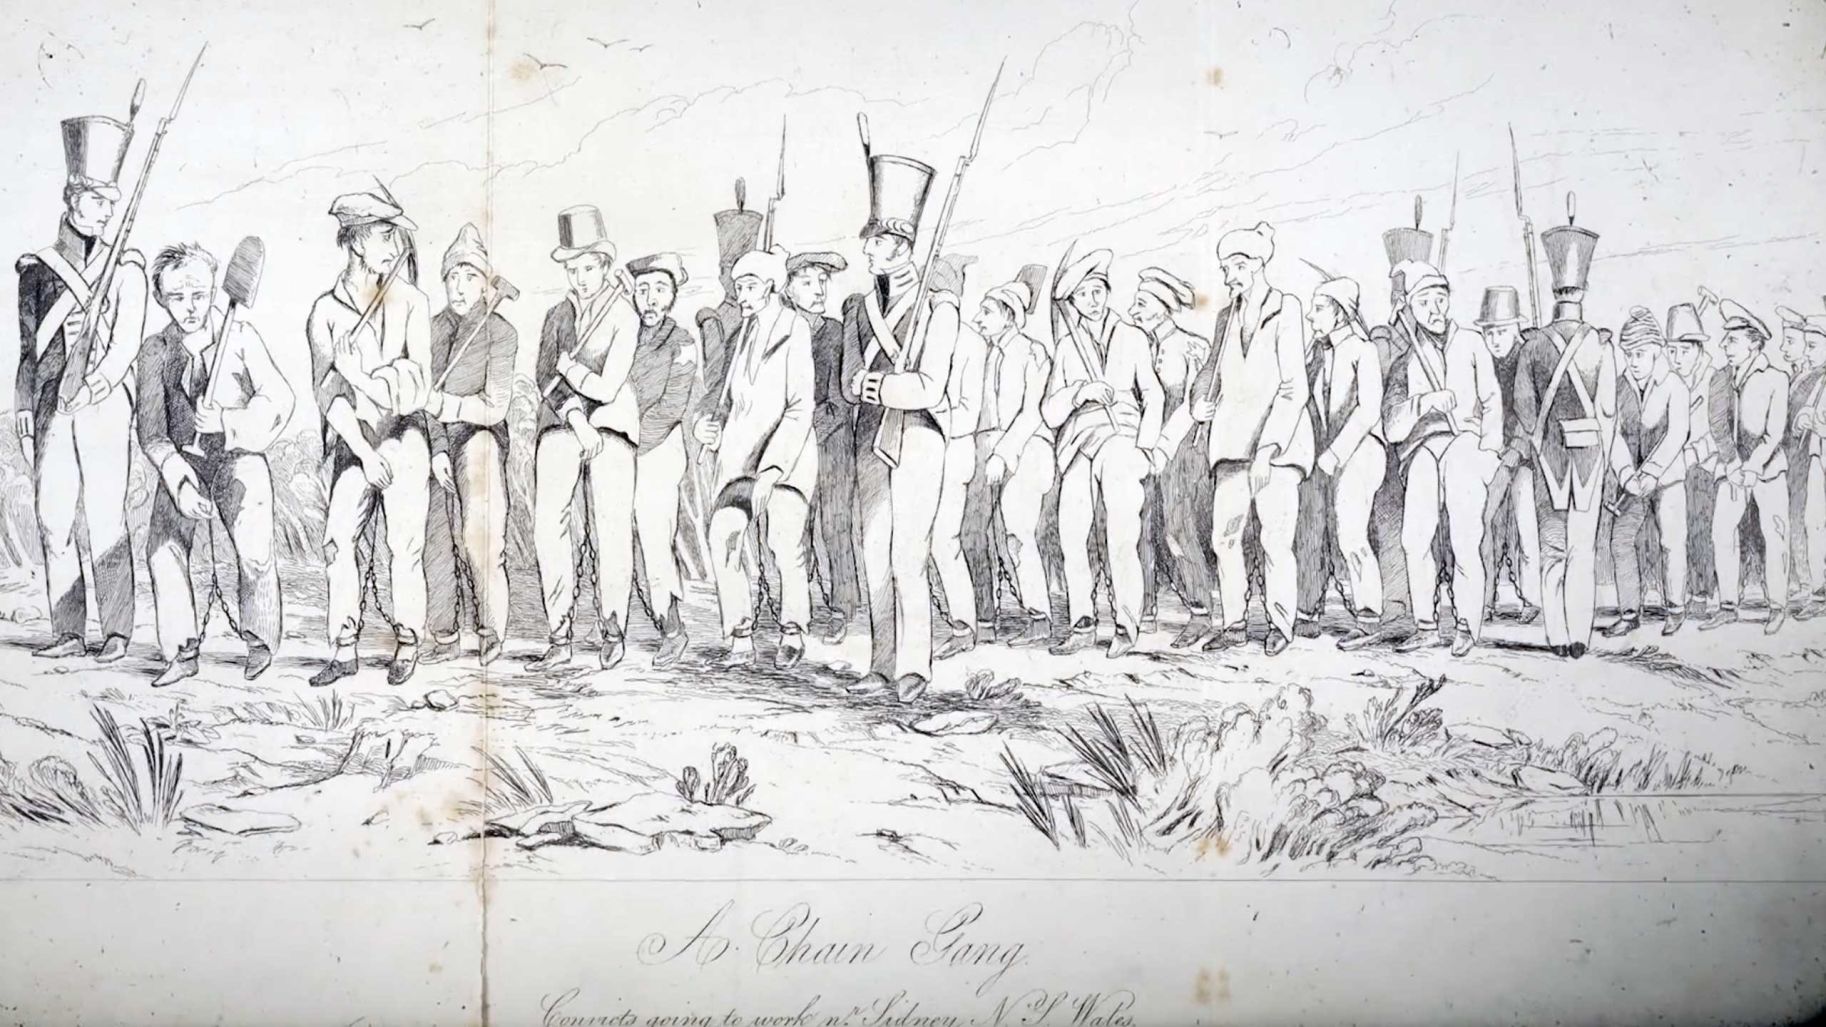 A Chain Gang.
Convicts going to work nr. Sidney, N. S. Wales.